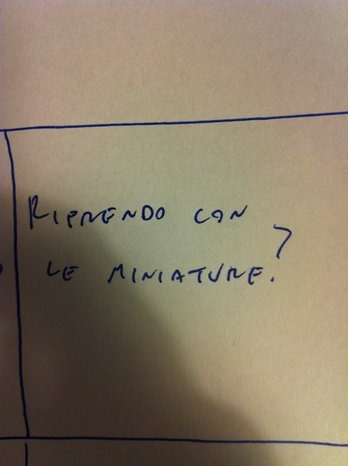 RIPRENDO CON
LE MINIATURE?